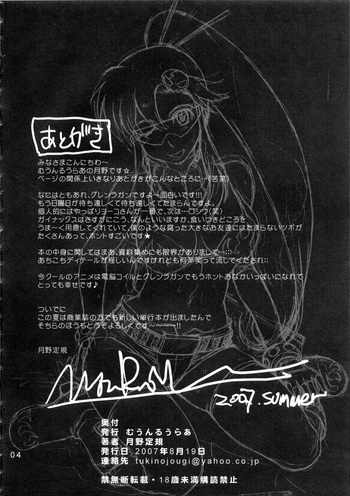 あとがき
みなさまこんにちわ～
むうんるうらあの月野です☆
ページの関係上いきなりあとがきがこんなところに…(苦笑)
なにはともあれ、グレンラガンですよ～面白いです!!!
もう日曜日が待ち遠しくて待ち遠しくてたまらんですよ。
個人的にはやっぱりヨーコさんが一番で、次は…ロシウ(笑)
ガイナックスはさすがにこう、なんといいますか、良いひきどころを
うま～く用意してくれていて、僕のような腐った大きなお友達にはたまらないツボが
たくさんあって、ホントすごいです★
本の中身に関しては、まあ、資料集めにも限界がありまして…
あちこちディテールが怪しいんですけれども月茶関って流してくだされ
今クールのアニメは電脳コイルとグレンラガンでもうホントおなかいっぱいになれて
とっても幸せです♪
ついでに
この夏は商業誌の方でも新しい単行本が出ましたんで
そちらのほうもどうぞよろしくです～～～!!!
月野定規
2007. summer
奥付
発行 むうんるうらあ
著者 月野定規
発行日 2007年8月19日
連絡先 tukinojougi@yahoo.co.jp
禁無断転載・18歳未満購読禁止
04